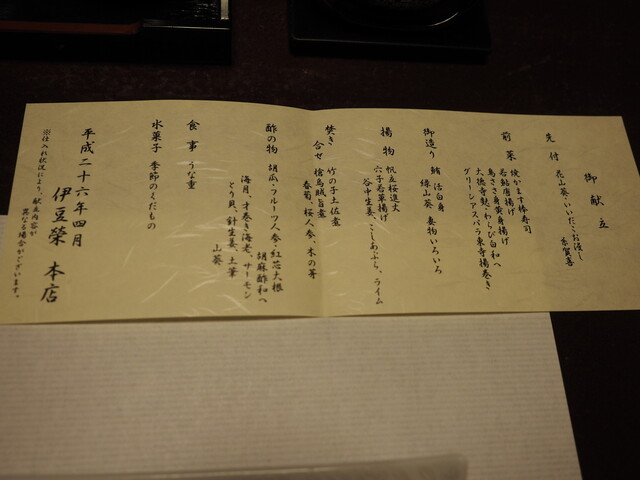 御献立
先付 花山葵・いいだこお浸し
糸賀喜
前菜 焼します棒寿司
若鮎月揚げ
鳥ささ身黄身揚げ
大徳寺麩・わらび白和へ
グリーンアスパラ東寺揚巻き
御造り 鮪 活白身
縁山葵 妻物いろいろ
揚物 帆立桜道文
穴子若草揚げ
谷中生姜、こしあぶら、ライム
焚き合せ 竹の子土佐煮
桧鳥賊旨煮
春菊、桜人参、木の芽
酢の物 胡瓜・フルーツ人参・紅芯大根
胡麻酢和へ
海月、才巻き海老、サーモン
とり貝、針生姜、土筆
山葵
食事 うな重
水菓子 季節のくだもの
平成二十六年四月
伊豆榮 本店
※仕入れ状況により、献立内容が
異なる場合がございます。